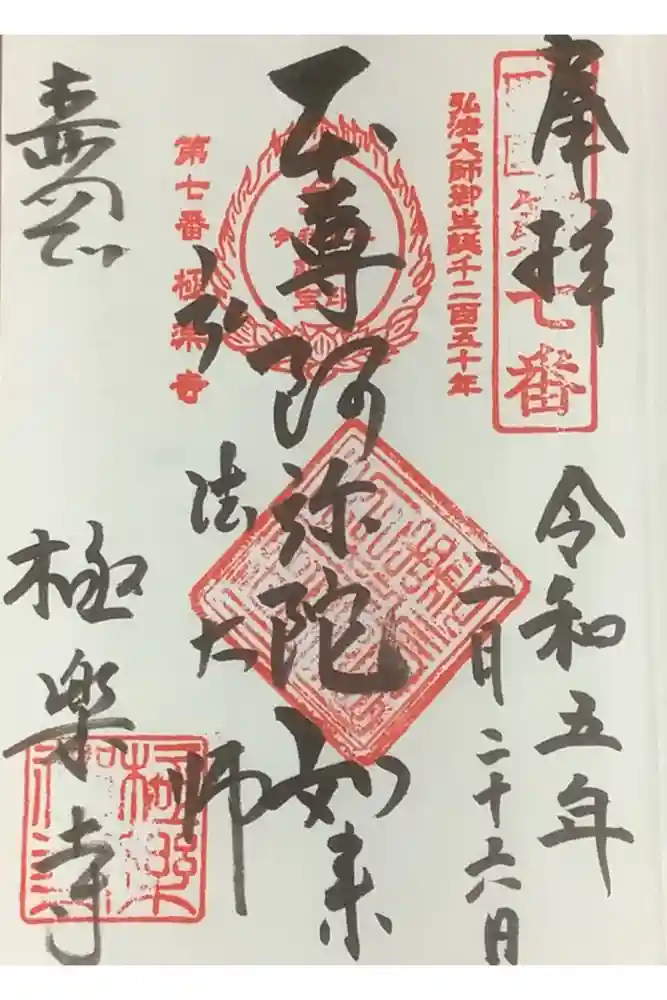 奉拝
七番
令和五年
二月二十六日
弘法大師御生誕千二百五十年
本尊阿弥陀如来
弘法大師
第七番 極楽寺
極楽寺